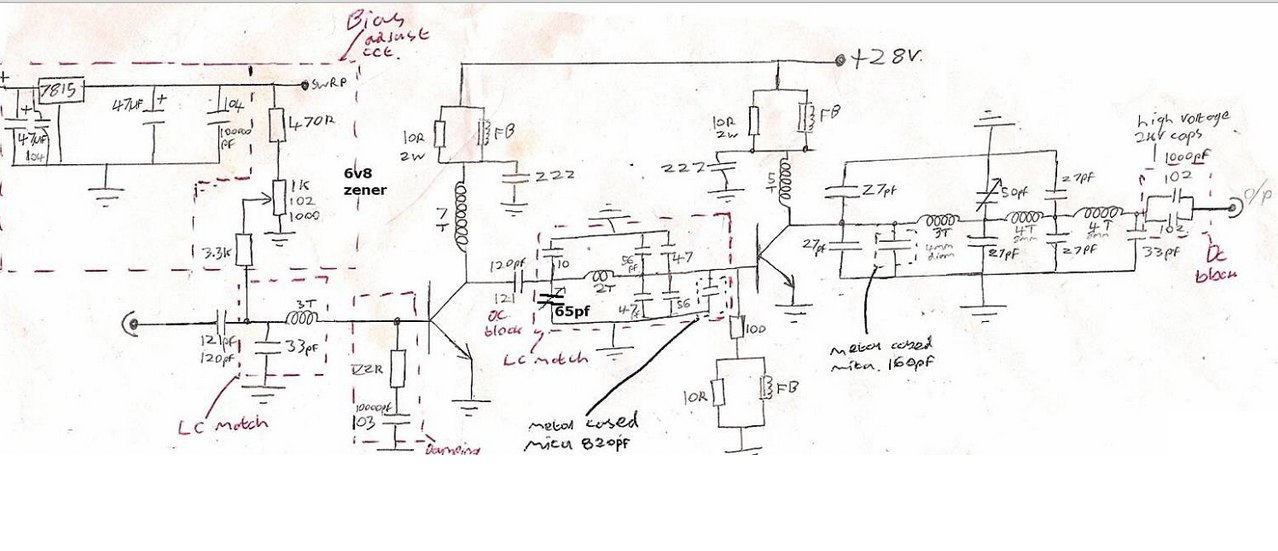 Bias
adjust
cct.
+28V.
+
7815
SWRP
47µF
+
104
10000
pf
470R
+
47µF
104
10R
2W
FB
222
6v8
zener
1K
102
1000
3.3K
7
T
10R
2W
FB
222
5
T
high voltage
2kv caps
1000pf
102
102
O/P
DC
block
27pf
27pf
50pf
27pf
3T
4mm
diam
4T
4T
27pf
27pf
33pf
metal cased
mica 160pf
120pf
121
DC
block
10
56
pf
47
2T
65pf
47pf
56
LC match
100
10R
FB
metal cased
mica 820pf
121pf
120pf
3T
33pf
LC match
22R
10000pf
103
Damping